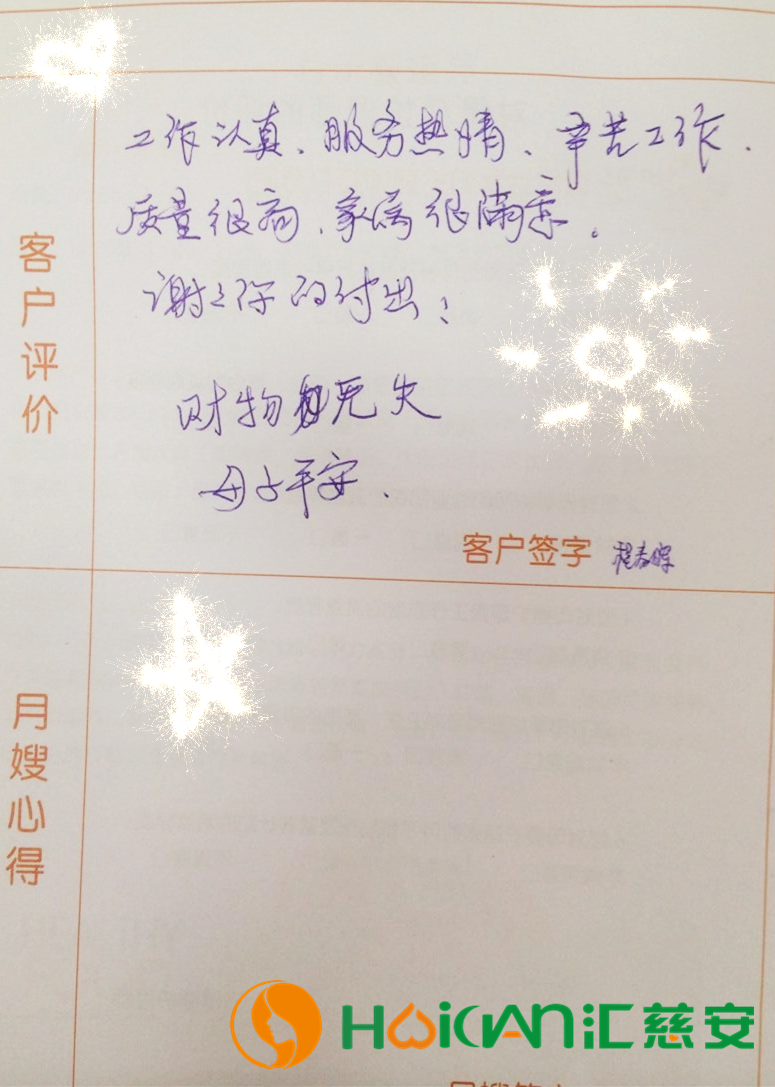 客户评价
工作认真、服务热情、辛苦工作.
质量很高、家属很满意。
谢之你的付出！
财物无失
母子平安.
客户签字
月嫂心得
HUICIAN汇慈安